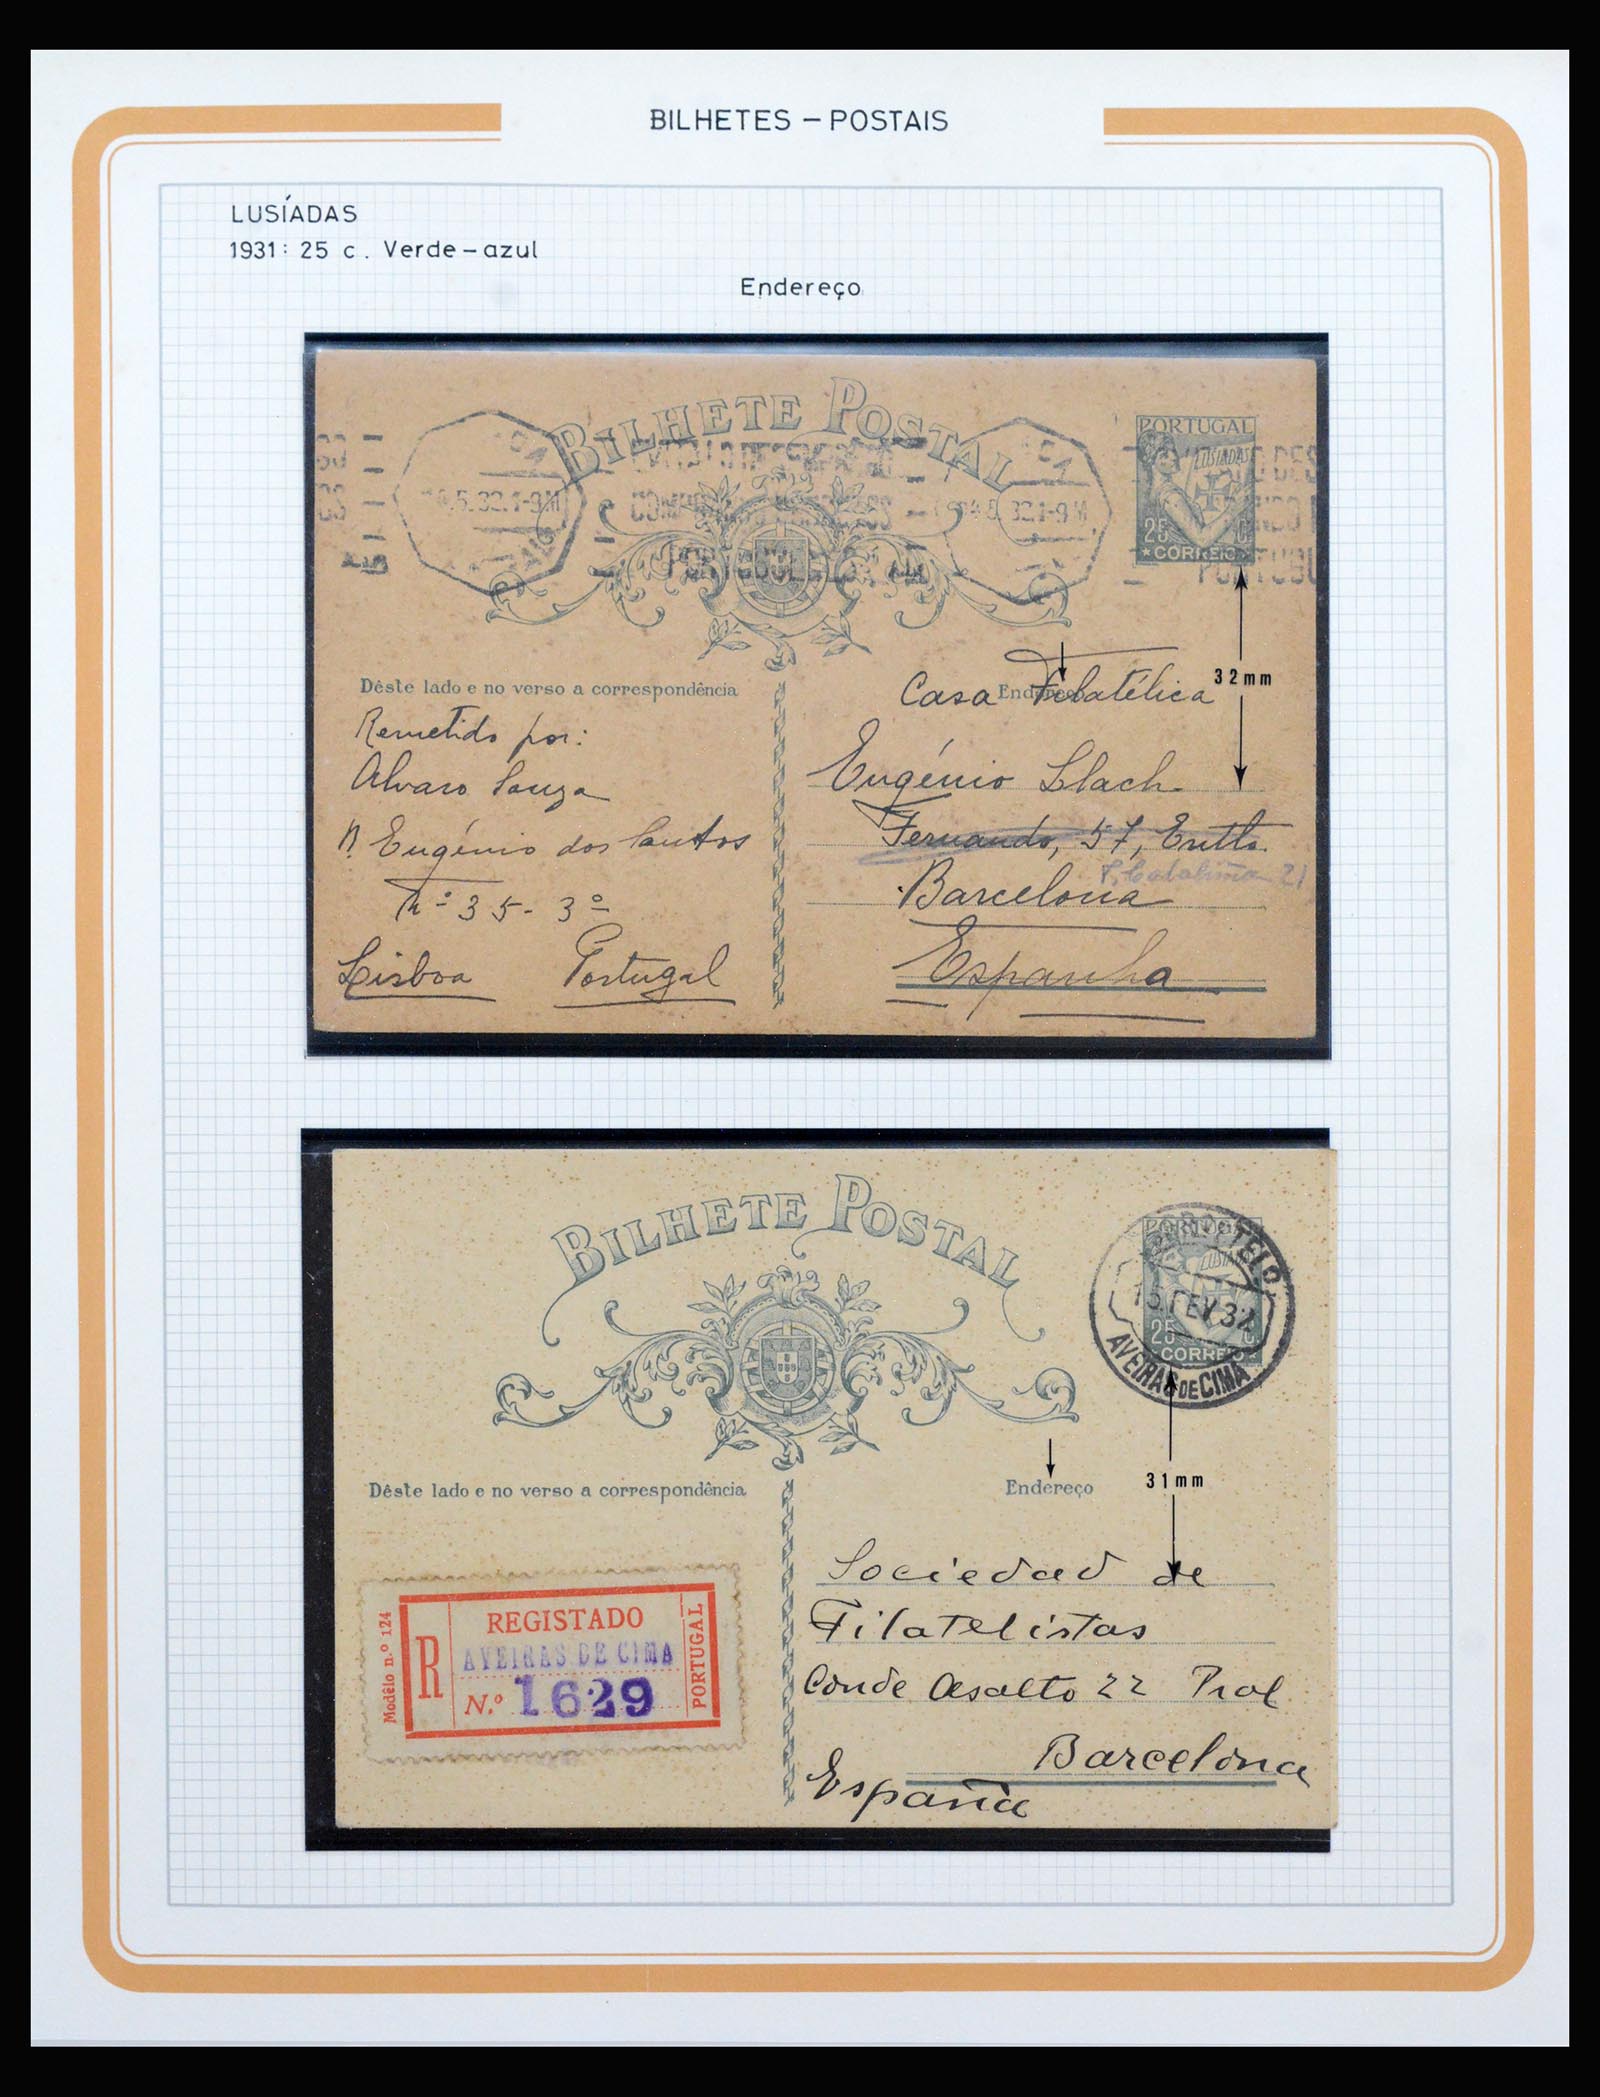 BILHETES — POSTAIS
LUSÍADAS
1931: 25 c. Verde-azul
Endereço
BILHETE POSTAL
PORTUGAL
LUSIADAS
25 C.
CORREIO
32mm
Dêste lado e no verso a correspondência
Endereço
Casa Filatélica
Remetido por:
Eugénio Llach
Alvaro Souza
Fernando, 57, Entlo.
R. Eugénio dos Santos
Barcelona
Nº 35-3º
Espanha
Lisboa Portugal
BILHETE POSTAL
PORTUGAL
LUSIADAS
FEV 32
25 C.
CORREIO
AVEIRAS DE CIMA
Dêste lado e no verso a correspondência
Endereço
31mm
Sociedad de
Filatelistas
Conde Asalto 22 Pral
Barcelona
España
Modêlo n.º 124
R
REGISTADO
AVEIRAS DE CIMA
N.º 1629
PORTUGAL